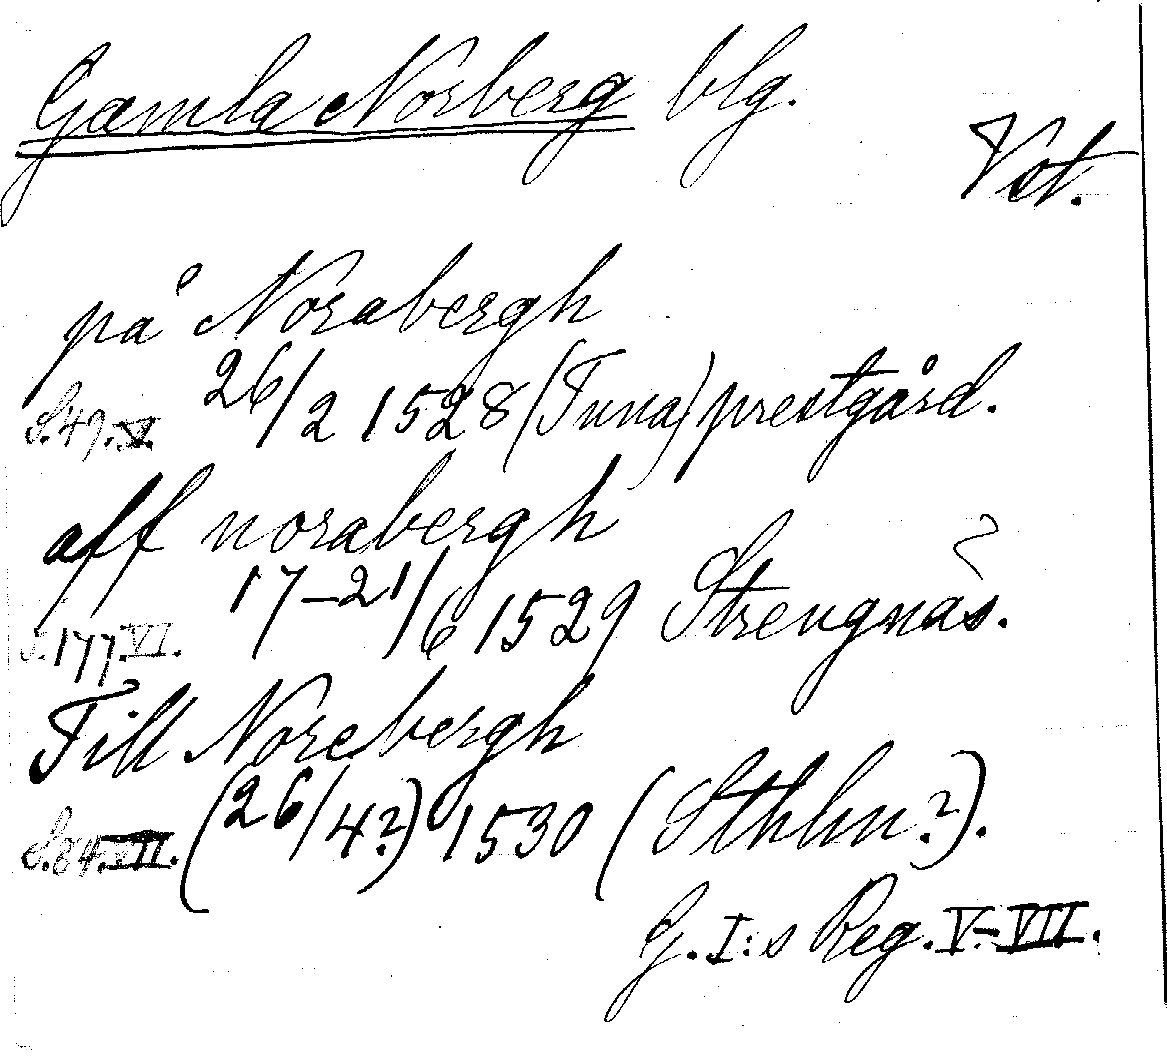 Gamla Norberg blg.
Vst.
på Norabergh
S.49.V. 26/2 1528 (Tuna) prestgård.
aff norabergh
S.177 VI. 17–21/6 1529 Strengnäs.
Till Norebergh
S.84.VII. (26/4?) 1530 (Sthlm?).
G. I:s Reg. V–VII.